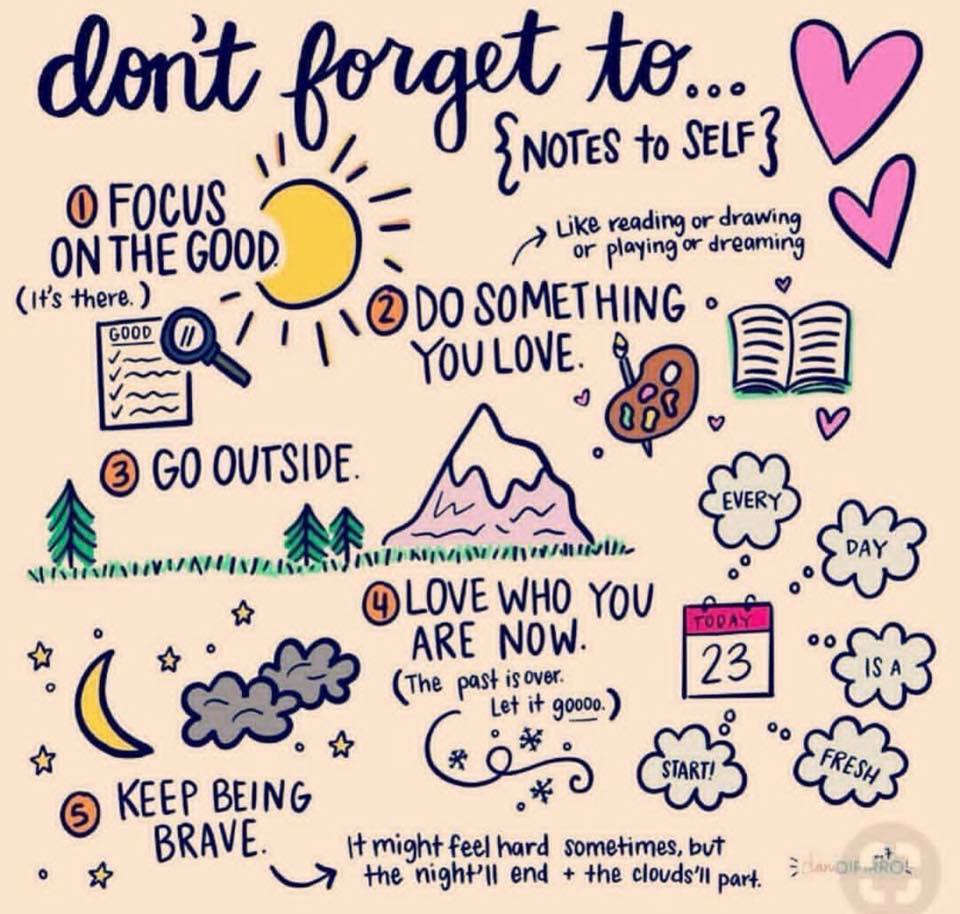 don't forget to...
{NOTES to SELF}
1 FOCUS
ON THE GOOD.
(it's there.)
GOOD
Like reading or drawing
or playing or dreaming
2 DO SOMETHING
YOU LOVE.
3 GO OUTSIDE.
4 LOVE WHO YOU
ARE NOW.
(The past is over.
Let it goooo.)
EVERY
DAY
IS A
FRESH
START!
TODAY
23
5 KEEP BEING
BRAVE.
It might feel hard sometimes, but
the night'll end + the clouds'll part.